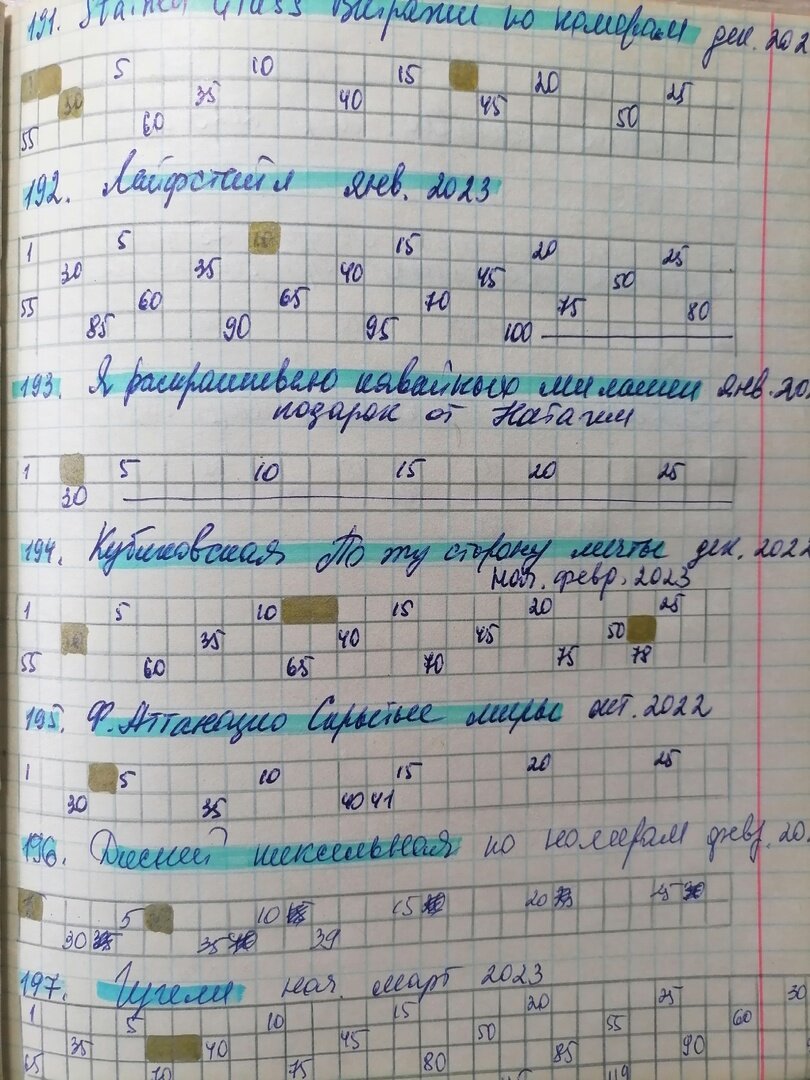 191. Stained Glass Витражи по номерам дек. 202
5 10 15 20 25
30 35 40 45 50
55 60
192. Лайфстайл янв. 2023
1 5 10 15 20 25
30 35 40 45 50
55 60 65 70 75 80
85 90 95 100
193. Я раскрашиваю кавайных милашек янв. 20
подарок от Наташи
1 5 10 15 20 25
30
194. Кубиковская По ту сторону мечты дек. 2022
ноя. февр. 2023
1 5 10 15 20 25
30 35 40 45 50
55 60 65 70 75 78
195. Ф. Аттанацио Скрытые миры окт. 2022
1 5 10 15 20 25
30 35 40 41
196. Дисней пиксельная по номерам февр. 20
5 10 15 20 25
30 35 39
197. ноя. март 2023
1 5 10 15 20 25 30
35 40 45 50 55 60
65 70 75 80 85 90
119